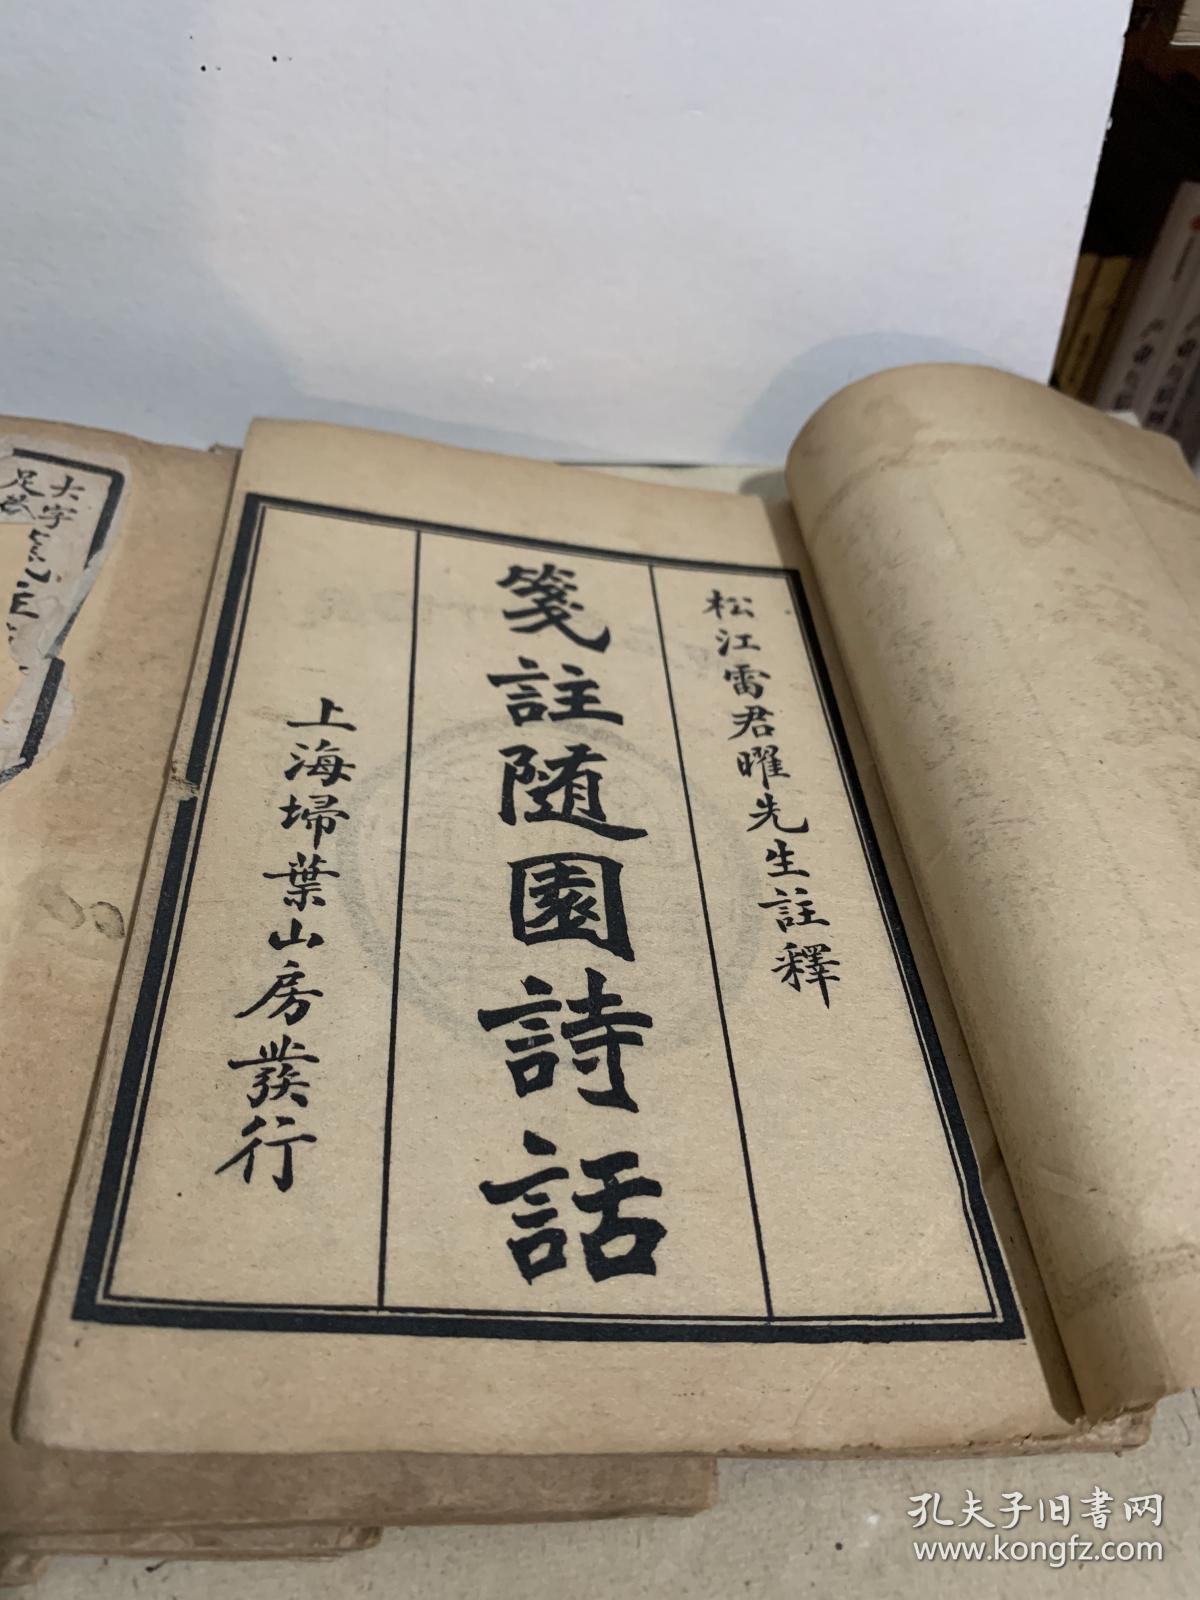 松江雷君曜先生註釋
箋註隨園詩話
上海埽葉山房發行
大字
足本
孔夫子旧書网
www.kongfz.com